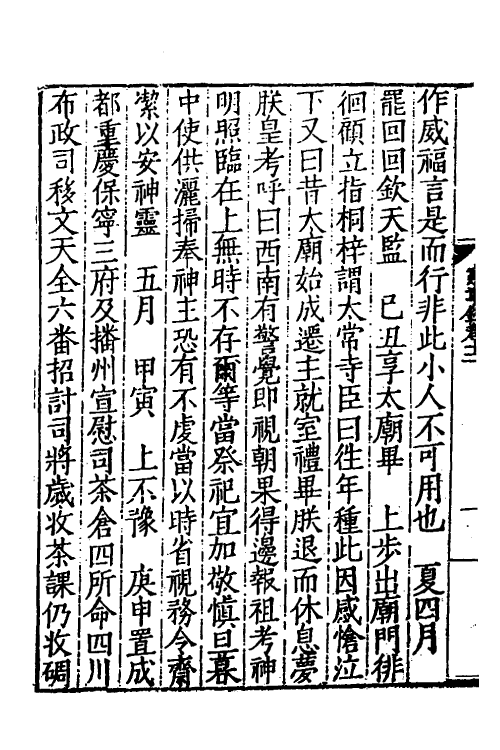 作威福言是而行非此小人不可用也　夏四月
罷回回欽天監　己丑享太廟畢　上步出廟門徘
徊顧立指桐梓謂太常寺臣曰徃年種此因感愴泣
下又曰昔太廟始成遷主就室禮畢朕退而休息夢
朕皇考呼曰西南有警覺即視朝果得邊報祖考神
明照臨在上無時不存爾等當祭祀宜加敬慎旦暮
中使供灑掃奉神主恐有不虔當以時省視務令齋
潔以安神靈　五月　甲寅　上不豫　庚申置成
都重慶保寧三府及播州宣慰司茶倉四所命四川
布政司移文天全六番招討司將歲收茶課仍收碉